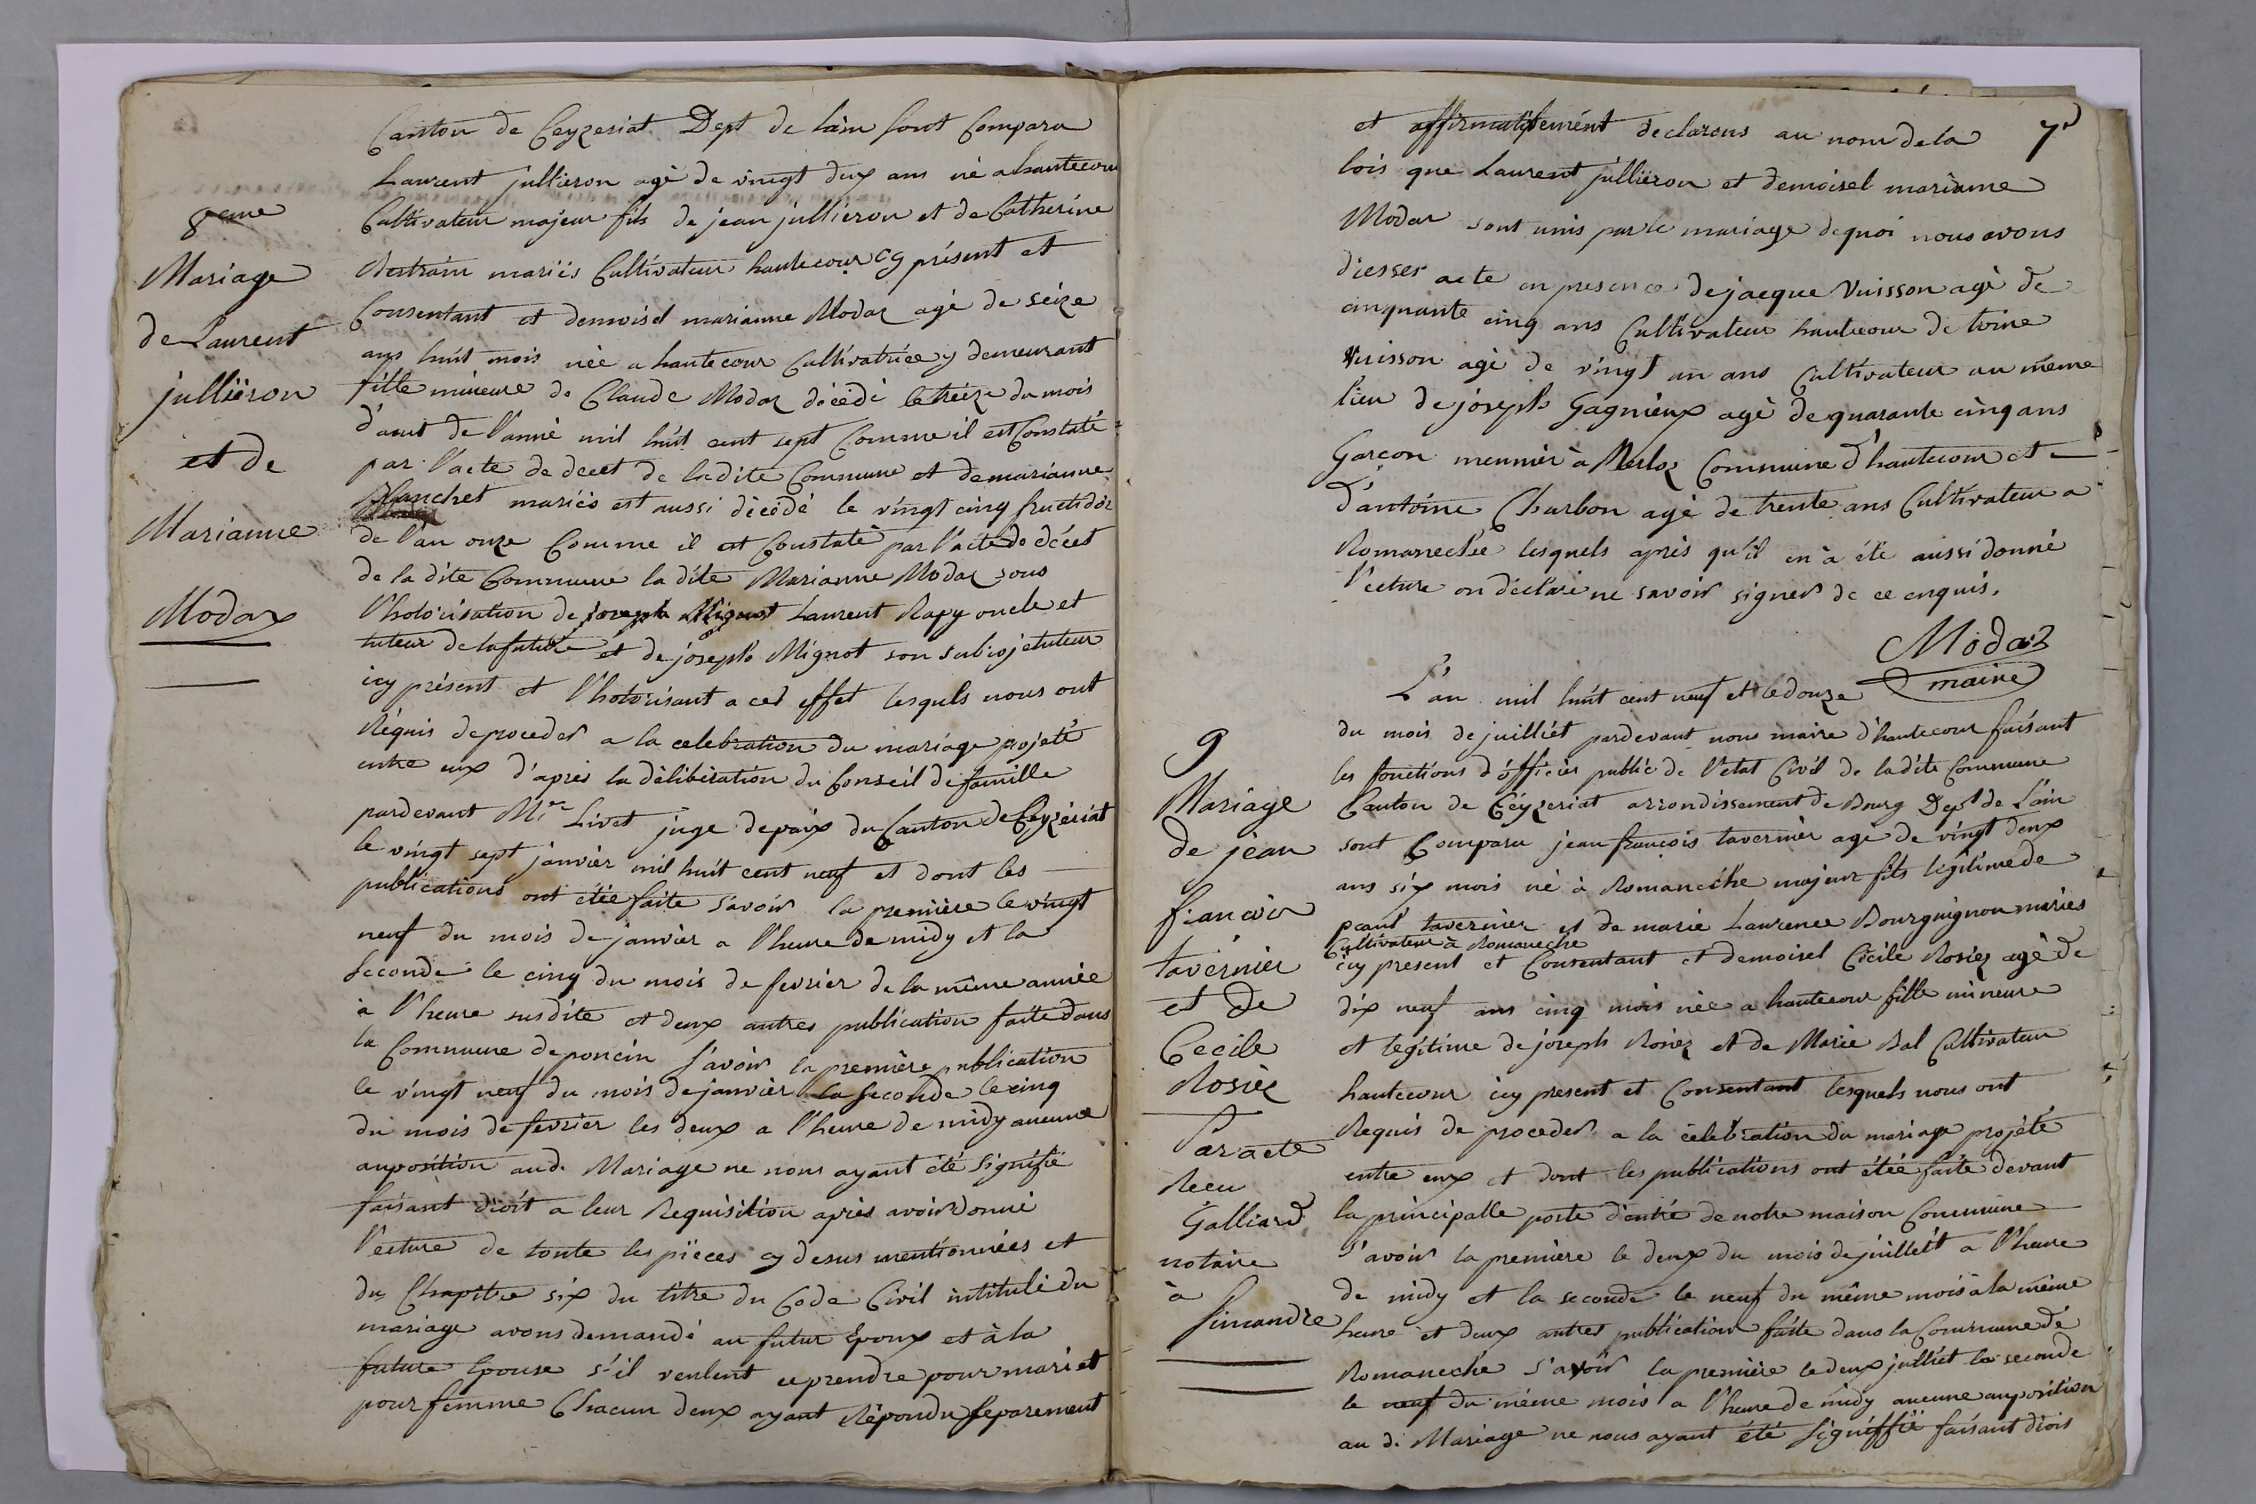 Canton de Ceyzeriat Dept de l'ain sont Comparu
Laurent jullieron agé de vingt deux ans né a hautecour
Cultivateur majeur fils de jean jullieron et de Catherine
mariés Cultivateur hautecour cy présent et
Consentant et demoisel marianne Modaz agé de seize
ans huit mois née a hautecour Cultivatrice y demeurant
fille mineure de Claude Modaz décédé le treize du mois
d'aout de l'anné mil huit cent sept Comme il est Constaté
par l'acte de decet de ladite Commune et de marianne
Blanchet mariés est aussi décédé le vingt cinq fructidor
de l'an onze Comme il est Constaté par l'acte de décet
de la dite Commune la dite Marianne Modaz sous
l'hotorisation de joseph Mignot Laurent Rapy oncle et
tuteur de la future et de joseph Mignot son subrojetuteur
icy présent et l'hotorisant a cet effet lesquls nous ont
Réquis de proceder a la celebration du mariage projeté
entre eux d'aprés la délibération du Conseil de famille
pardevant Mr Livet juge de paix du Canton de Ceyzériat
le vingt sept janvier mil huit cent neuf et dont les
publications ont étée faite s'avoir la première le vingt
neuf du mois de janvier a l'heure de midy et la
seconde le cinq du mois de fevrier de la même année
à l'heure susdite et deux autres publication faite dans
la Commune de poncin s'avoir la première publication
le vingt neuf du mois de janvier la seconde le cinq
du mois de fevrier les deux a l'heure de midy aucune
auposition aud. Mariage ne nous ayant été signifié
faisant droit a leur Requisition après avoir donné
l'ecture de toute les pièces cy desus mentionnées et
du Chapitre six du titre du Code Civil intitulé du
mariage avons demandé au futur Epoux et à la
future Epouse s'il veulent ce prendre pour mari et
pour femme Chacun deux ayant Répondu separement
8eme
Mariage
de Laurent
jullieron
et de
Marianne
Modax
7
et affirmatifement declarons au nom de la
lois que Laurent jullieron et demoisel marianne
Modaz sont unis par le mariage de quoi nous avons
diesser acte en presence de jacque Vuisson agé de
cinquante cinq ans Cultivateur hautecour de toine
Vuisson agé de vingt un ans Cultivateur au même
lieu de joseph Gagnieux agé de quarante cinq ans
Garçon meunier à Merloz Commune d'hautecour et
d'antoine Charbon agé de trente ans Cultivateur a
Romaneche lesquels aprés qu'il en à été aussi donné
l'ecture on déclaré ne savoir signer de ce enquis.
Modaz
maire
L'an mil huit cent neuf et le douze
du mois de juilliét pardevant nous maire d'hautecour faisant
les fonctions d'officier public de l'etat Civil de ladite Commune
Canton de Céyzeriat arrondissement de Bourg Dept de L'ain
sont Comparu jean françois tavernier agé de vingt deux
ans six mois né à Romanéche majeur fils légitime de
paul tavernier et de marie Laurence Bourguignon mariés
Cultivateur à Romaneche
icy present et Consentant et demoisel Cécile Rosiez agé de
dix neuf ans cinq mois née a hautecour fille mineure
et legitime de joseph Rosiez et de Marie Bal Cultivateur
hautecour icy present et Consentant lesquels nous ont
Requis de proceder a la célébration du mariage projété
entre eux et dont les publications ont étée faite devant
la principalle porte d'entré de notre maison Commune
s'avoir la première le deux du mois de juillét a l'heure
de midy et la seconde le neuf du même mois à la même
heure et deux autres publication faite dans la Commune de
Romaneche s'avoir la première le deux julliét la seconde
le neuf du même mois a l'heure de midy aucune auposition
au d. Mariage ne nous ayant été signiffié faisant drois
9
Mariage
de jean
françois
tavérnier
et de
Cecile
Rosiez
Par acte
Recu
Galliard
notaire
à
Simandre